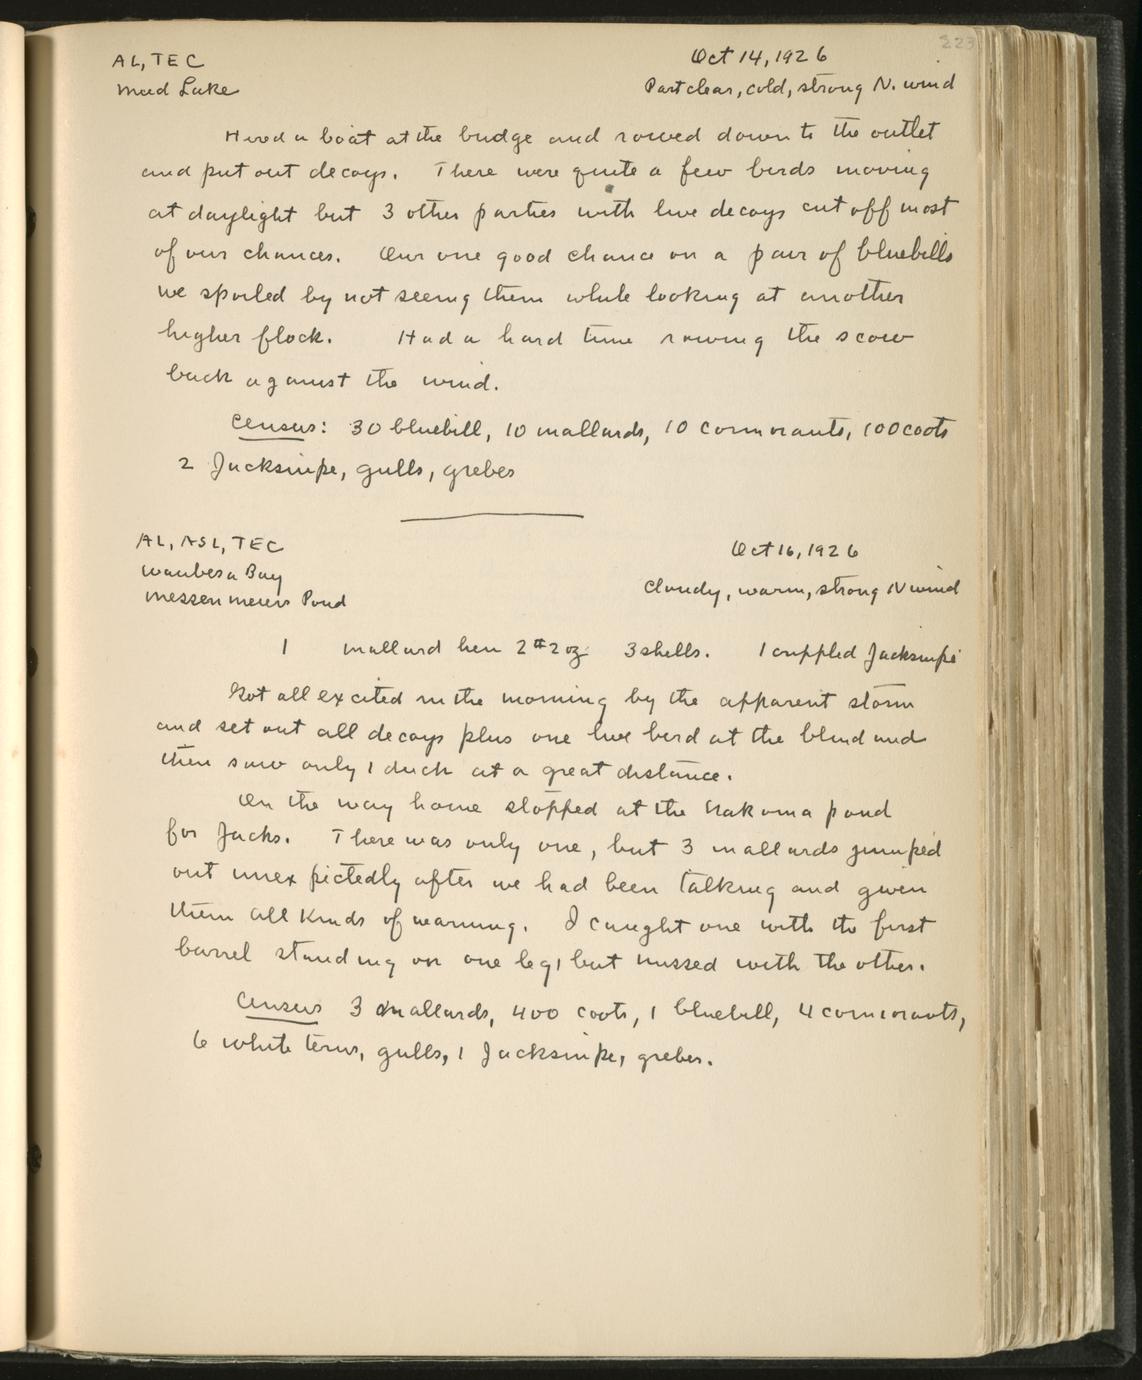 223
AL, TEC
Oct 14, 1926
Mud Lake
Part clear, cold, strong N. wind
Hired a boat at the bridge and rowed down to the outlet
and put out decoys. There were quite a few birds moving
at daylight but 3 other parties with live decoys cut off most
of our chances. Our one good chance on a pair of bluebills
we spoiled by not seeing them while looking at another
higher flock. Had a hard time rowing the scow
back against the wind.
Census: 30 bluebill, 10 mallards, 10 cormorants, 100 coots
2 Jacksnipe, gulls, grebes
AL, ASL, TEC
Oct 16, 1926
Waubesa Bay
Cloudy, warm, strong N wind
Messenmeiers Pond
1 mallard hen 2# 2 oz 3 shells. 1 crippled Jacksnipe
Got all excited in the morning by the apparent storm
and set out all decoys plus one live bird at the blind and
then saw only 1 duck at a great distance.
On the way home stopped at the Nakoma pond
for Jacks. There was only one, but 3 mallards jumped
out unexpictedly after we had been talking and given
them all kinds of warning. I caught one with the first
barrel standing on one leg, but missed with the other.
Census 3 mallards, 400 coots, 1 bluebill, 4 cormorants,
6 white terns, gulls, 1 Jacksnipe, grebes.